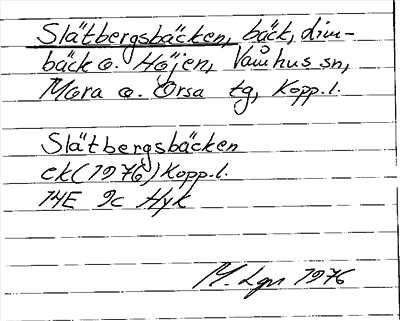 Slätbergsbäcken, bäck, dim-
bäck a. Höjen, Våmhus sn,
Mora o. Orsa tg, Kopp.l.
Slätbergsbäcken
ek (1976) Kopp.l.
14E 9c Hyk
M. Lgn 1976